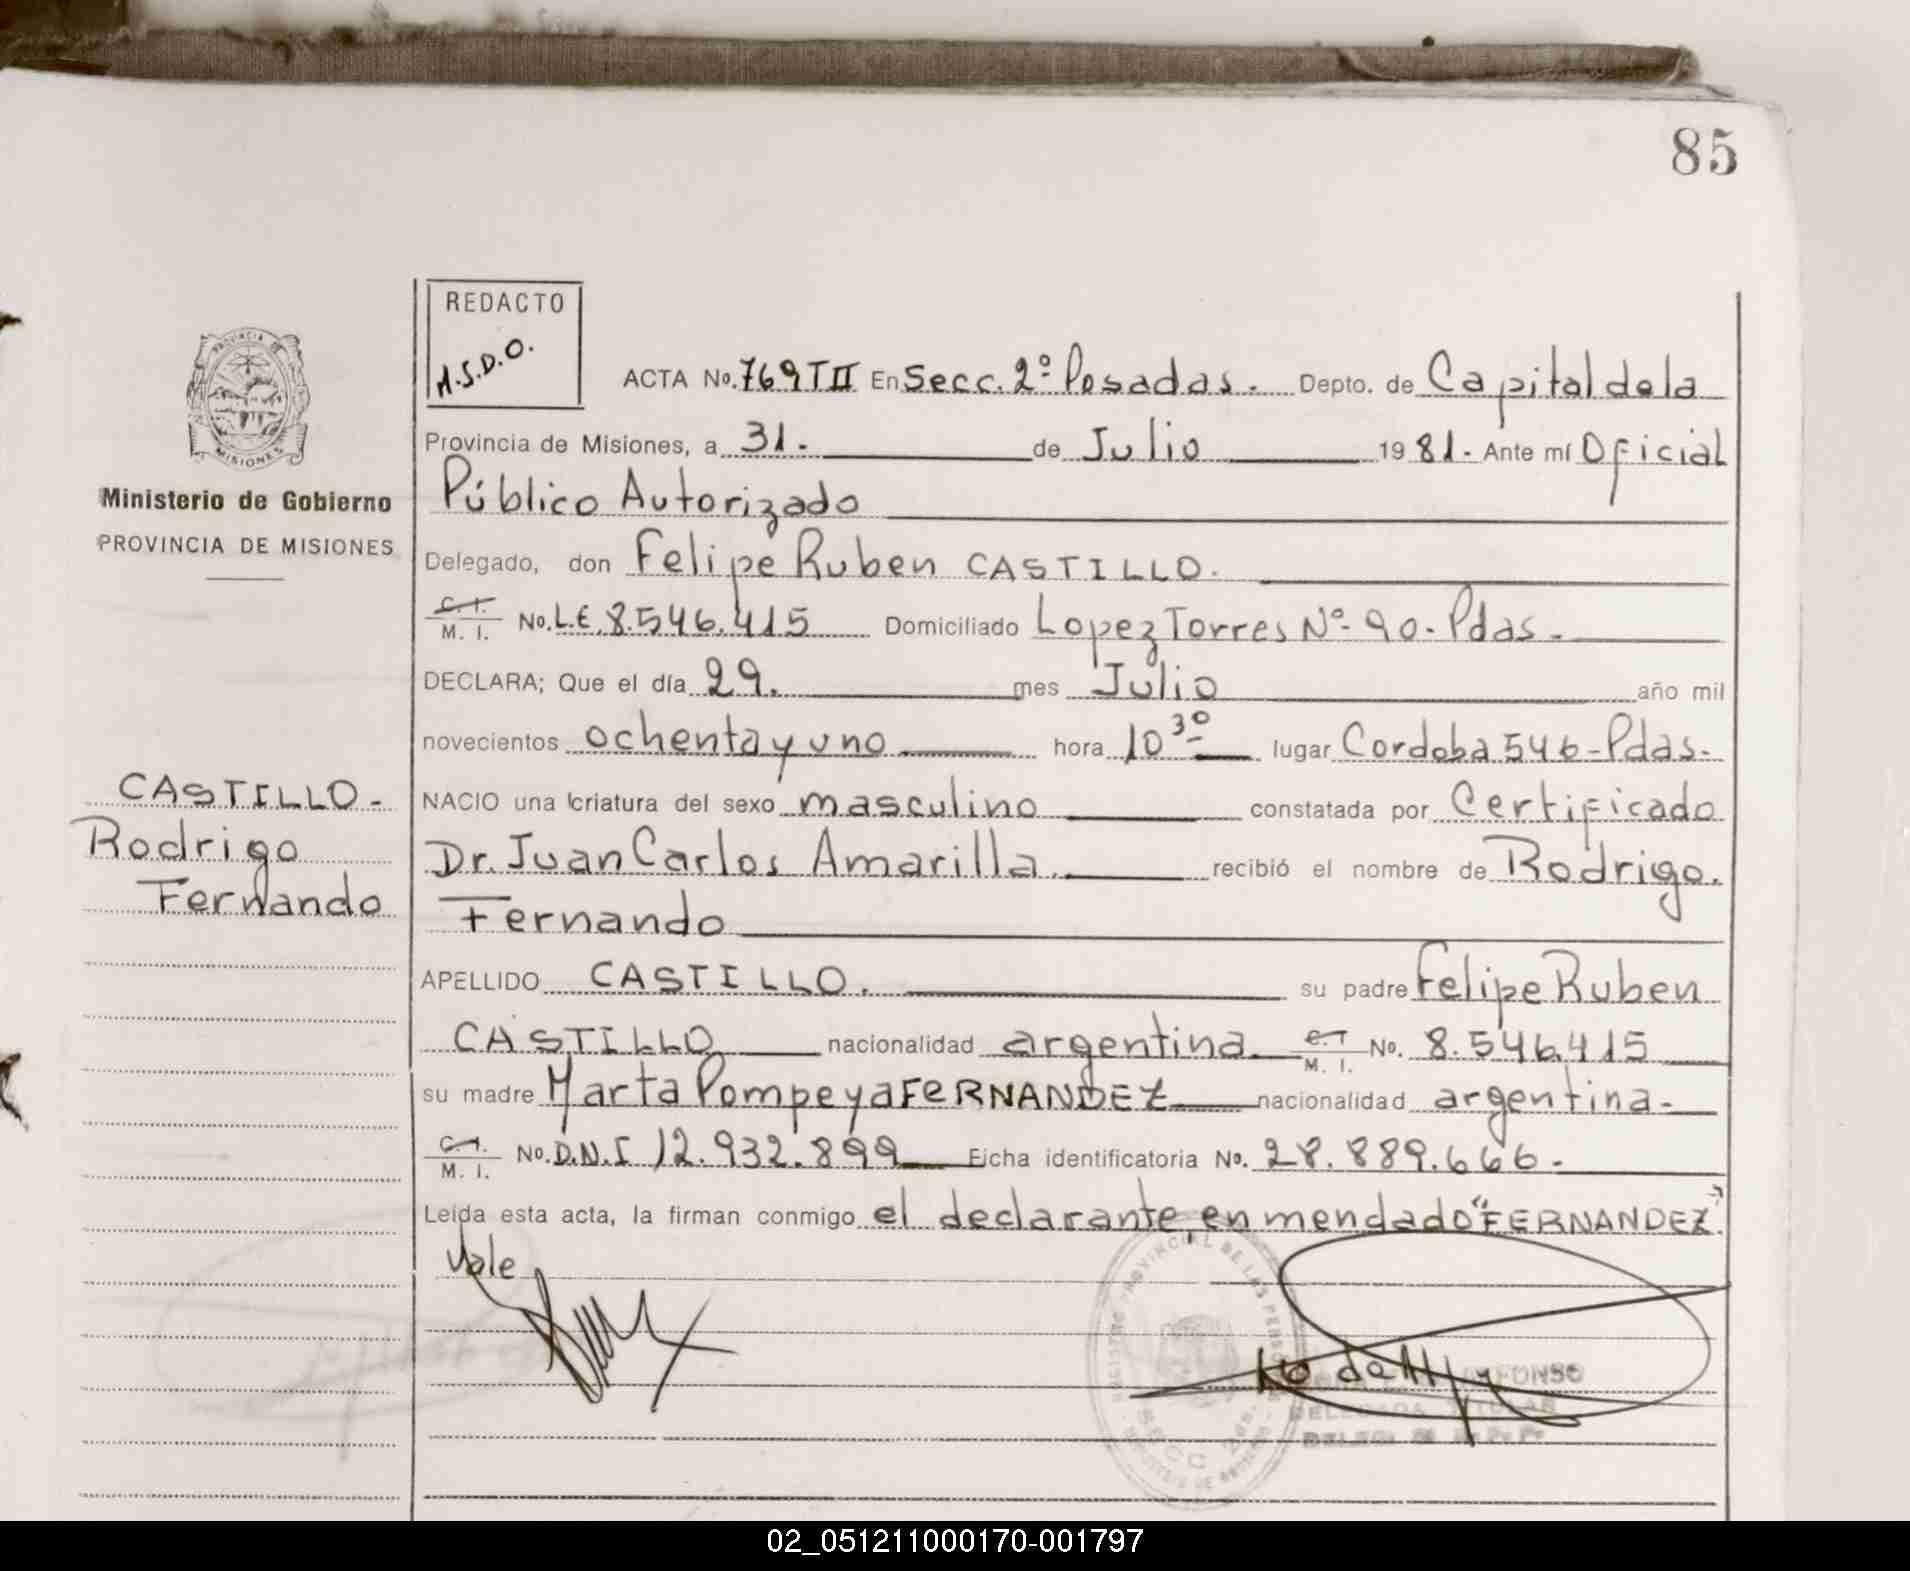 85
REDACTO
M.S.D.O.
ACTA No. 769 T II En Secc. 2º Posadas. Depto. de Capital de la
Provincia de Misiones, a 31. de Julio 1981. Ante mí Oficial
Público Autorizado
PROVINCIA DE
MISIONES
Ministerio de Gobierno
PROVINCIA DE MISIONES
Delegado, don Felipe Ruben CASTILLO.
C. I. M. I. No. L.E. 8.546.415 Domiciliado Lopez Torres Nº 90. Pdas.
DECLARA; Que el día 29. mes Julio año mil
novecientos ochenta y uno hora 10 30 lugar Cordoba 546-Pdas.
CASTILLO-
Rodrigo
Fernando
NACIO una criatura del sexo masculino constatada por Certificado
Dr. Juan Carlos Amarilla. recibió el nombre de Rodrigo.
Fernando
APELLIDO CASTILLO. su padre Felipe Ruben
CASTILLO nacionalidad argentina C.I. M. I. No. 8.546.415
su madre Marta Pompeya FERNANDEZ nacionalidad argentina-
C.I. M. I. No. D.N.I 12.932.899 Ficha identificatoria No. 28.889.666.-
Leída esta acta, la firman conmigo el declarante, enmendado "FERNANDEZ"
Vale
REGISTRO PROVINCIAL DE LAS PERSONAS
SECC 2da.
DELEGADA TITULAR
02_051211000170-001797